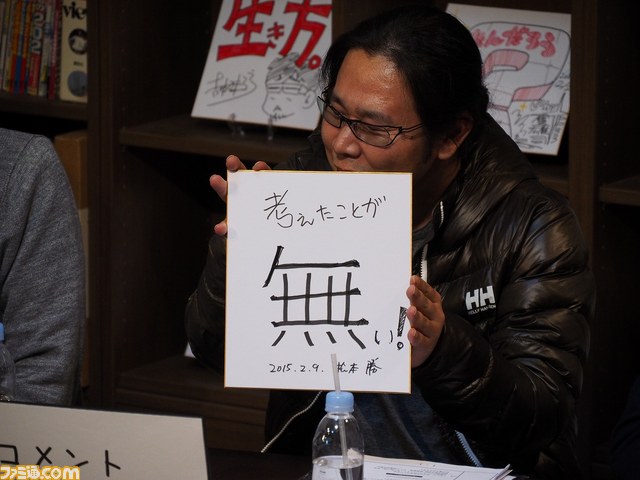 生き方。
んだろう
考えたことが
無い!
2015.2.9. 松本 勝
HH
HELLY HANSEN
コメント
ファミ通.com